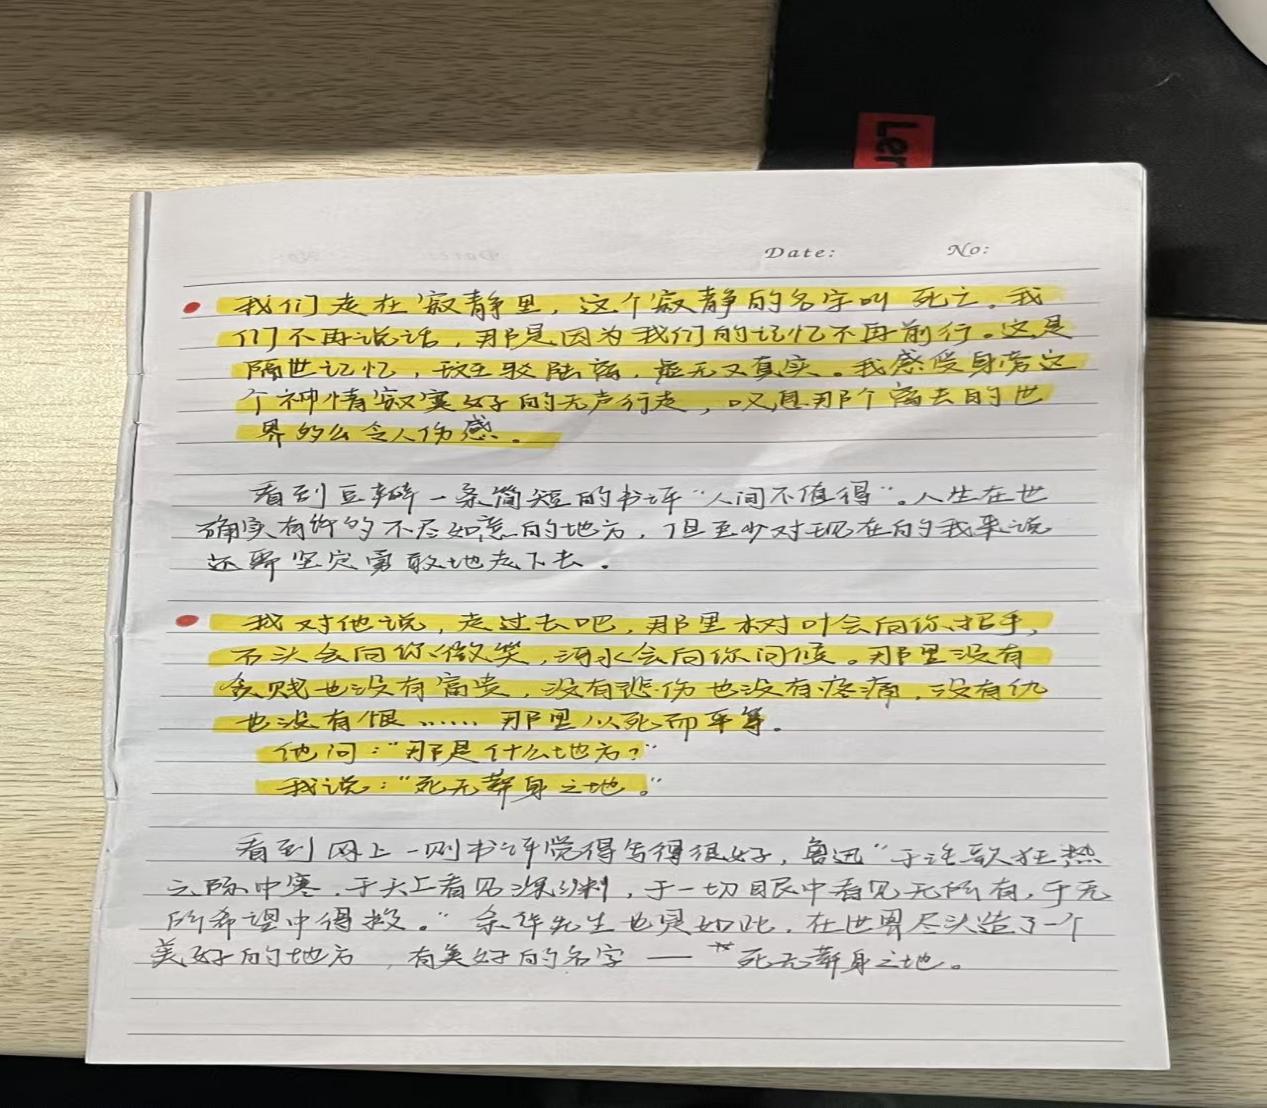 Len
Date: No:
我们走在寂静里，这个寂静的名字叫死亡。我
们不再说话，那是因为我们的记忆不再前行。这是
隔世记忆，斑驳陆离，虚无又真实。我感受身旁这
个神情寂寞女子的无声行走，叹息那个离去的世
界的么令人伤感。
看到豆瓣一条简短的书评“人间不值得”。人生在世
确实有许多不尽如意的地方，但至少对现在的我来说
还要坚定勇敢地走下去。
我对他说，走过去吧，那里树叶会向你招手，
石头会向你微笑，河水会向你问候。那里没有
贫贱也没有富贵，没有悲伤也没有疼痛，没有仇
也没有恨……那里人人死而平等。
他问：“那是什么地方？”
我说：“死无葬身之地。”
看到网上一则书评觉得写得很好，鲁迅“于浩歌狂热
之际中寒，于天上看见深渊，于一切眼中看见无所有，于无
所希望中得救。”余华先生也是如此，在世界尽头造了一个
美好的地方，有美好的名字——“死无葬身之地。